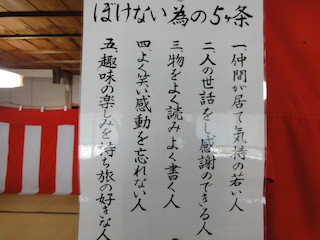 ぼけない為の5ヶ条
一、仲間が居て気持の若い人
二、人の世話をし感謝のできる人
三、物をよく読みよく書く人
四、よく笑い感動を忘れない人
五、趣味の楽しみを持ち旅の好きな人